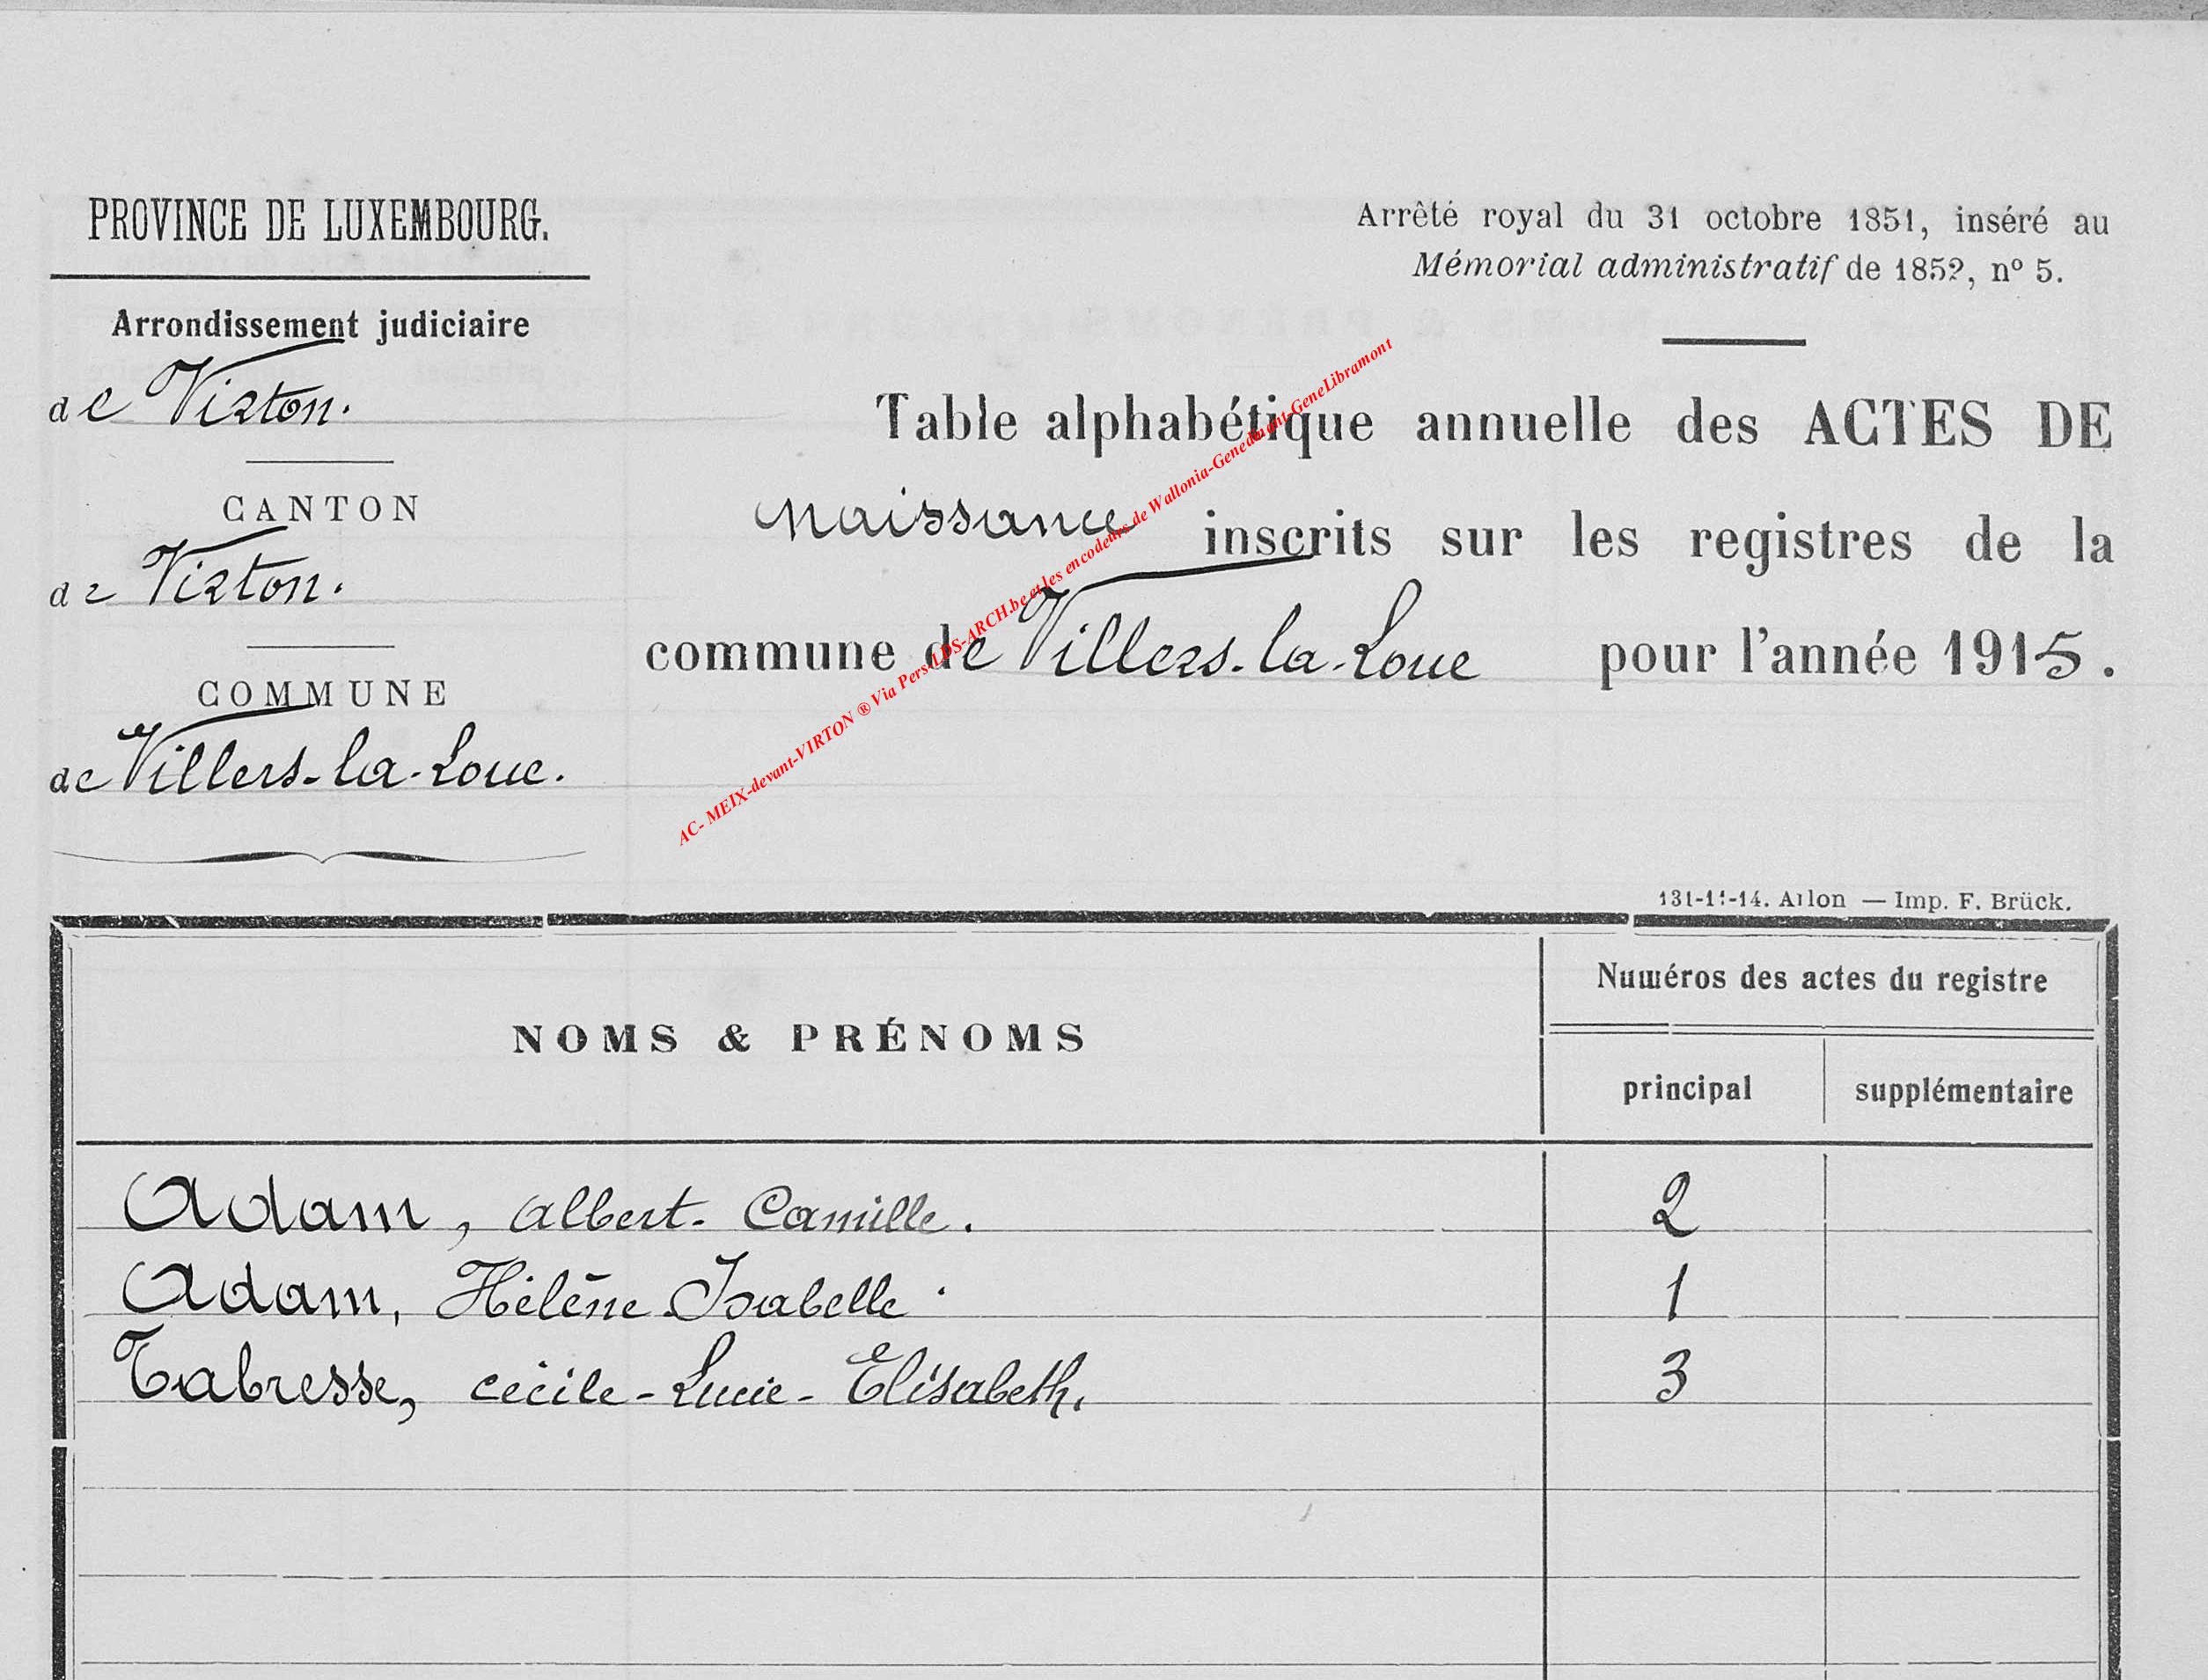 PROVINCE DE LUXEMBOURG.
Arrondissement judiciaire
de Virton.
CANTON
de Virton.
COMMUNE
de Villers-la-Loue.
Arrêté royal du 31 octobre 1851, inséré au
Mémorial administratif de 1852, nº 5.
Table alphabétique annuelle des ACTES DE
Naissance inscrits sur les registres de la
commune de Villers-la-Loue pour l'année 1915.
AC- MEIX-devant-VIRTON ® Via Pers-LDS-ARCH.be et les encodeurs de Wallonia-Genedinant-GeneLibramont
131-11-14. Arlon — Imp. F. Brück.
NOMS & PRÉNOMS
Numéros des actes du registre
principal supplémentaire
Adam, Albert-Camille. 2
Adam, Hélène-Isabelle. 1
Tabresse, Cécile-Lucie-Elisabeth. 3